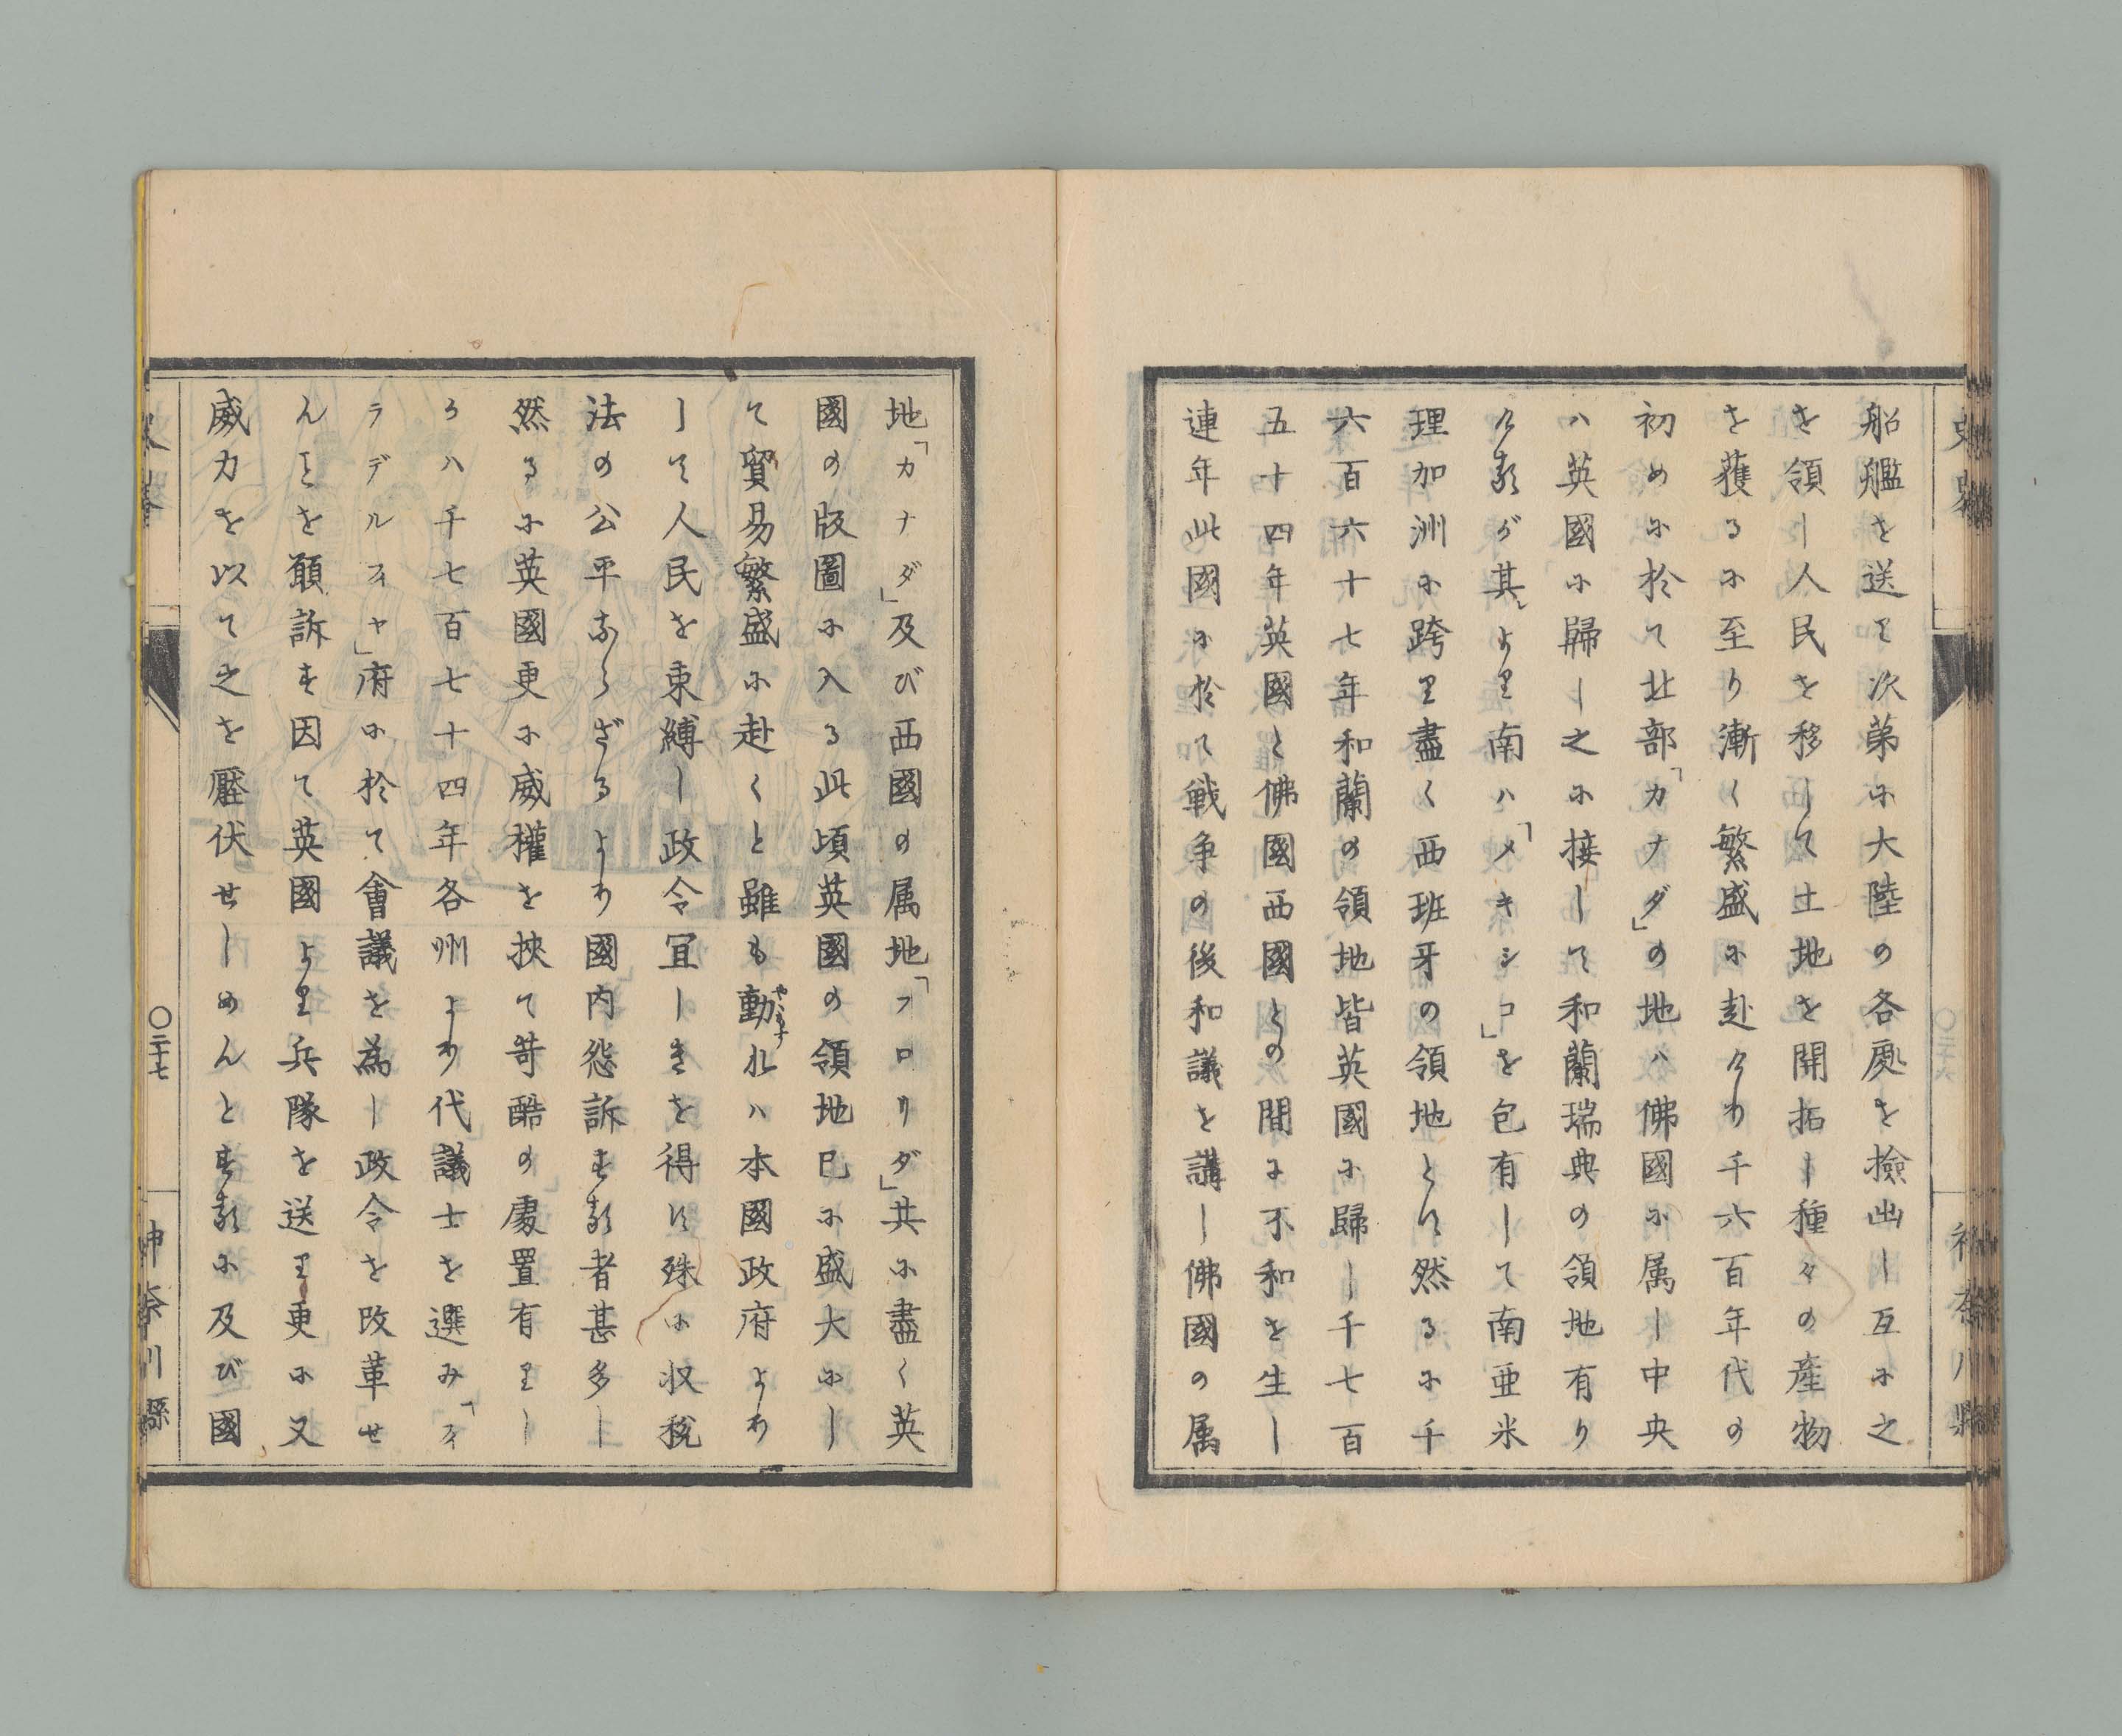 史畧
神奈川縣
船艦を送りて次第に大陸の各處を撿出し互に之
を領し人民を移して土地を開拓し種々の產物
を獲るに至り漸く繁盛に赴けり千六百年代の
初めに於て北部「カナダ」の地ハ佛國に属し中央
ハ英國に歸し之に接して和蘭瑞典の領地有り
けるが其より南ハ「メキシコ」を包有して南亜米
理加洲に跨り盡く西班牙の領地とす然るに千
六百六十七年和蘭の領地皆英國に歸し千七百
五十四年英國と佛國西國との間に不和を生し
連年此國に於て戦争の後和議を講し佛國の属
地「カナダ」及び西國の属地「フロリダ」共に盡く英
國の版圖に入る此頃英國の領地已に盛大にし
て貿易繁盛に赴くと雖も動れハ本國政府より
して人民を束縛し政令冝しきを得ず殊に收稅
法の公平ならざるより國内愁訴する者甚多し
然るに英國更に威權を挾て苛酷の處置有りし
るハ千七百七十四年各州より代議士を選み「フィ
ラデルフィヤ」府に於て會議を為し政令を改革せ
んことを願訴す因て英國より兵隊を送り更に又
威力を以て之を壓伏せしめんとするに及び國
〇二十七
神奈川縣